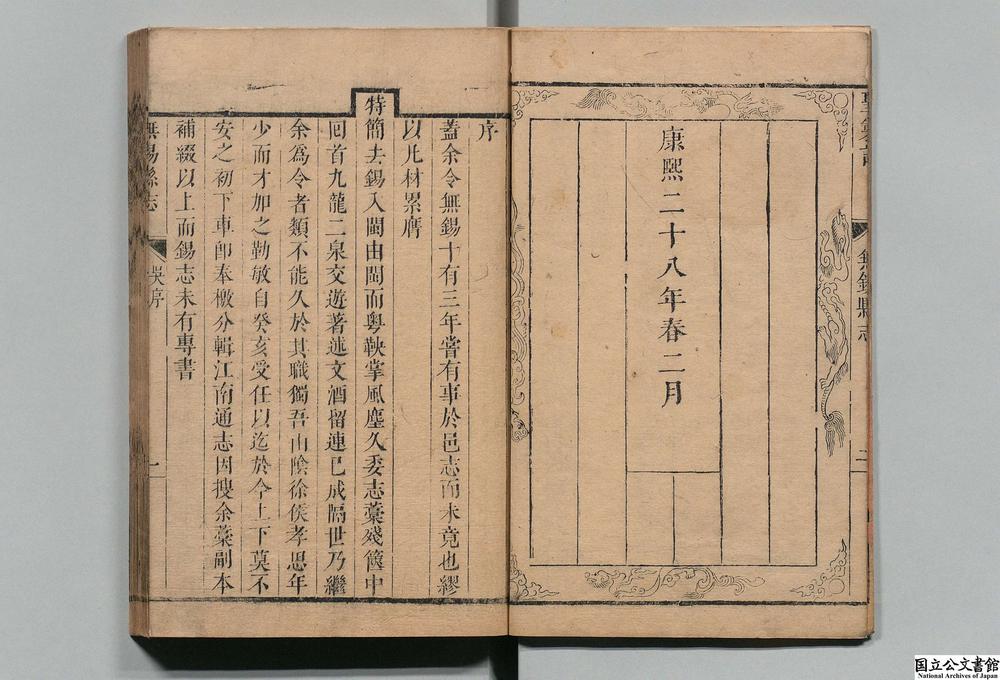 康熙二十八年春二月
無錫縣志
二
序
蓋余令無錫十有三年嘗有事於邑志而未竟也繆
以凡材累膺
特簡去錫入閩由閩而粵鞅掌風塵久委志藁殘篋中
回首九龍二泉交遊著述文酒留連已成隔世乃繼
余爲令者類不能久於其職獨吾山陰徐侯孝思年
少而才加之勤敏自癸亥受任以迄於今上下莫不
安之初下車卽奉檄分輯江南通志因搜余藁副本
補綴以上而錫志未有專書
無錫縣志
吳序
一
国立公文書館
National Archives of Japan